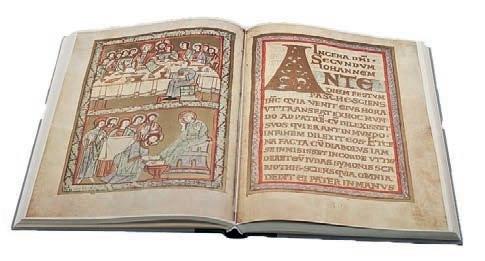 IN CENA DNI·
SECVNDVM
IOHANNEM
ANTE
DIEM FESTVM
PASCHE SCIENS
IHC QVIA VENIT EIVS HORA
VT TRANSEAT EX HOC MVN
DO AD PATRE CV DILEXISSET
SVOS QVI ERANT IN MVNDO·
IN FINEM DILEXIT EOS· ET CE
NA FACTA CV DIABOLVS IAM
MISISSET IN CORDE VT TRA
DERET EV IVDAS SYMONIS SCA
RIOTHIS· SCIENS QVIA OMNIA
DEDIT EI PATER IN MANVS